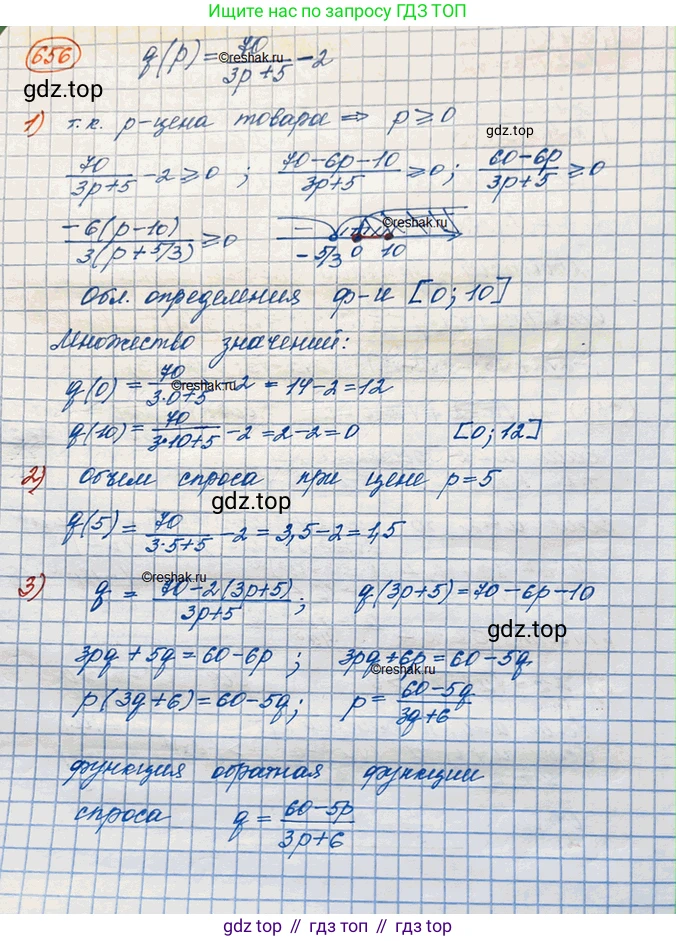 Ищите нас по запросу ГДЗ ТОП
656 q(p) = 70/(3p+5) - 2
©reshak.ru
gdz.top
1) т.к. p-цена товара ⇒ p ≥ 0
gdz.top
70/(3p+5) - 2 ≥ 0 ; (70-6p-10)/(3p+5) ≥ 0 ; (60-6p)/(3p+5) ≥ 0
-6(p-10)/3(p+5/3) ≥ 0 -5/3 0 10
©reshak.ru
Обл. определения ф-и [0; 10]
Множество значений:
q(0) = 70/(3·0+5) - 2 = 14-2 = 12
©reshak.ru
q(10) = 70/(3·10+5) - 2 = 2-2 = 0 [0; 12]
2) Объем спроса при цене p = 5
gdz.top
q(5) = 70/(3·5+5) - 2 = 3,5-2 = 1,5
©reshak.ru
3) q = (70-2(3p+5))/(3p+5) ; q(3p+5) = 70-6p-10
gdz.top
3pq + 5q = 60-6p ; 3pq+6p = 60-5q
©reshak.ru
p(3q+6) = 60-5q ; p = (60-5q)/(3q+6)
функция обратная функции
спроса q = (60-5p)/(3p+6)
gdz.top // гдз.топ // гдз.top